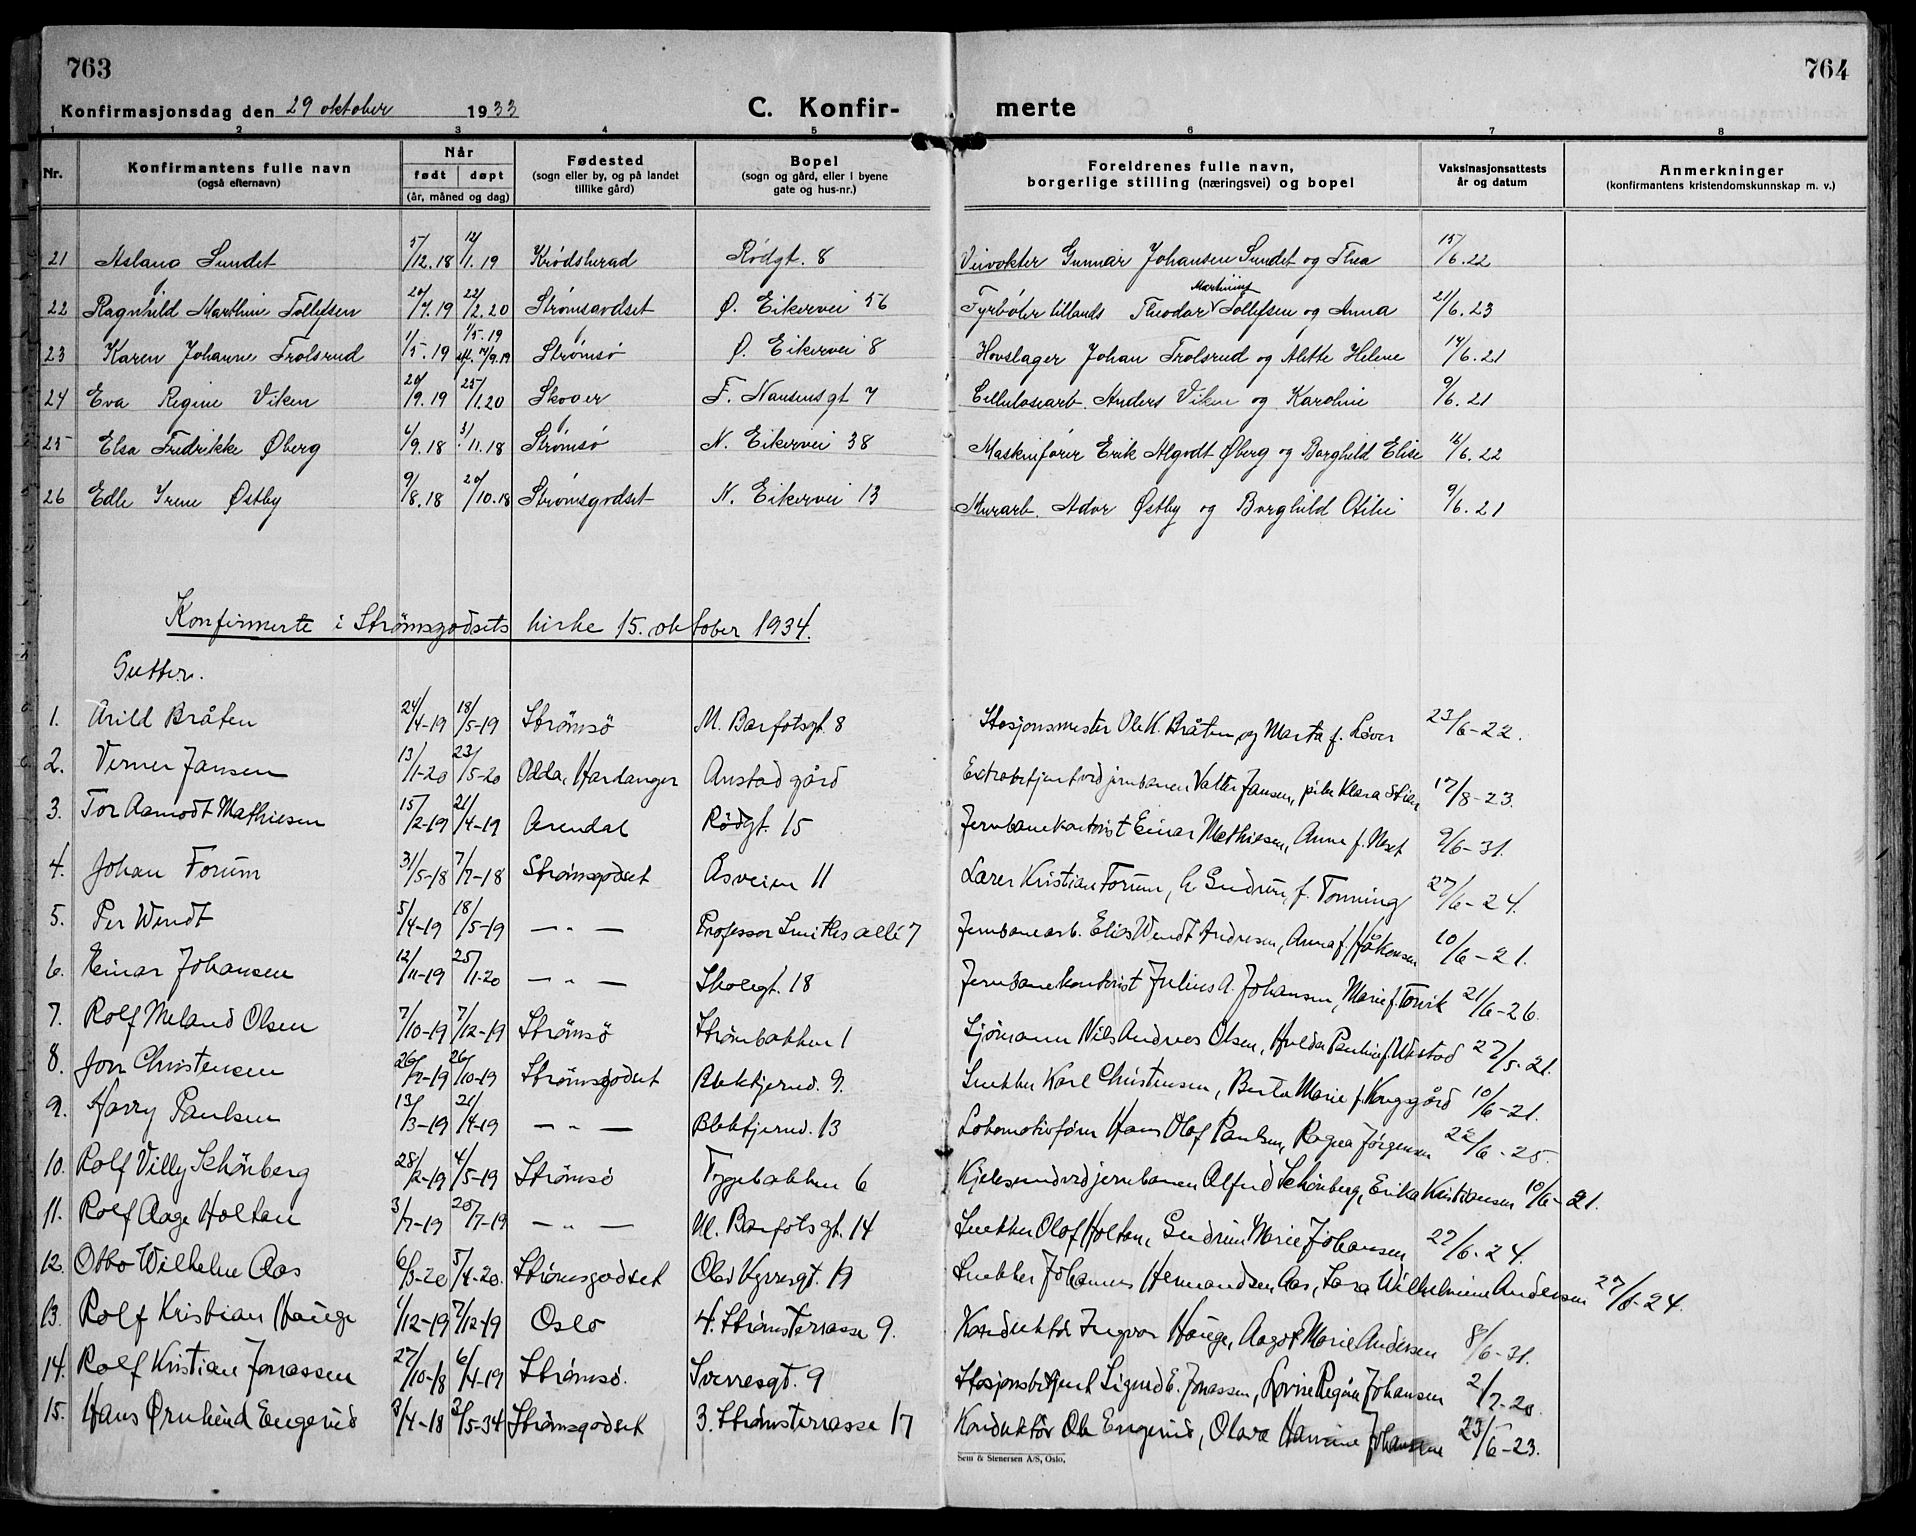 763
764
Konfirmasjonsdag den 29 oktober 1933
C. Konfir-
merte
1 2 3 4 5 6 7 8
Nr.
Konfirmantens fulle navn
(også efternavn)
Når
født døpt
(år, måned og dag)
Fødested
(sogn eller by, og på landet
tillike gård)
Bopel
(sogn og gård, eller i byene
gate og hus-nr.)
Foreldrenes fulle navn,
borgerlige stilling (næringsvei) og bopel
Vaksinasjonsattests
år og datum
Anmerkninger
(konfirmantens kristendomskunnskap m. v.)
21 Aslaug Sundet 5/12.18 12/1.19 Krødsherad Rødgt. 8 Veivokter Gunnar Johansen Sundet og Thea 15/6.22
Martinius
22 Ragnhild Marthine Tollefsen 20/7.19 22/2.20 Strømsgodset Ø. Eikervei 56 Fyrbøter tillands Theodor Tollefsen og Anna 21/6.23
1/5.19
23 Karen Johanne Trolsrud 1/5.19 7/9.19 Strømsø Ø. Eikervei 8 Hovslager Johan Trolsrud og Alette Helene 14/6.21
24 Eva Regine Viken 20/9.19 25/1.20 Skoger F. Nansensgt 7 Cellulosearb. Anders Viken og Karoline 9/6.21
25 Elsa Fredrikke Øberg 6/9.18 3/11.18 Strømsø N. Eikervei 38 Maskinfører Erik Algodt Øberg og Borghild Elise 16/6.22
26 Edle Irene Østby 9/8.18 20/10.18 Strømsgodset N. Eikervei 13 Murarb. Ador Østby og Borghild Otilie 9/6.21
Konfirmerte i Strømsgodsets kirke 15. oktober 1934.
Gutter.
1. Arild Bråten 24/4-19 18/5-19 Strömsö M. Barfotsgt 8 Stasjonsmester Ole K. Bråten og Marta f. Løver 23/6-22.
2. Verner Jansen 13/11-20 23/5-20 Odda, Hardanger Anstad gård Extrabetjent ved jernbanen Valter Jansen, Klara Stien 17/8-23.
3. Tor Aamodt Mathiesen 15/2-19 21/4-19 Arendal Rødgt. 15 Jernbanekontorist Einar Mathiesen, Anna f. Neset 9/6-31.
4. Johan Forum 31/5-18 7/7-18 Strömsgodset Åsveien 11 Lærer Kristian Forum, Gudrun f. Tonning 27/6-24.
5. Per Wendt 5/4-19 18/5-19 — " — Professor Smiths allé 7 Jernbanearb. Elias Wendt Andresen, Anna f. Håkonsen 10/6-21.
6. Einar Johansen 12/11-19 25/1-20 — " — Skolegt. 18 Jernbanekontorist Julius A. Johansen, Marie f. Torvik 21/6-26.
7. Rolf Meland Olsen 7/10-19 7/12-19 Strömsö Strömbakken 1 Sjömann Nils Andreas Olsen, Hulda Pauline f. 27/5-21.
8. Jon Christensen 26/7-19 26/10-19 Strömsgodset Blektjernd. 9. Snekker Karl Christensen, Berta Marie f. Kongsgård 10/6-21.
9. Harry Paulsen 13/3-19 21/4-19 — " — Blektjernd. 13 Lokomotivförer Hans Olaf Paulsen, Ragna Jörgensen 22/6-25.
10. Rolf Villy Schönberg 28/2-19 4/5-19 Strömsö Tyggebakken 6 Kjelesmed ved jernbanen Alfred Schönberg, Erika Kristiansen 10/6-21.
11. Rolf Aage Holtan 3/7-19 20/7-19 — " — M. Barfotsgt. 14 Snekker Olaf Holtan, Gudrun Marie Johansen 27/6-24.
12. Otto Wilhelm Aas 6/3-20 5/4-20. Strömsgodset Olav Kyrresgt. 19 Snekker Johannes Hermandsen Aas, Lara Wilhelmine Andersen 27/6-24.
13. Rolf Kristian Hauge 1/12-19 7/12-19 Oslo 4. Strömsterrasse 9. Konduktör Ingvar Hauge, Aagot Marie Andersen 8/6-31.
14. Rolf Kristian Jonassen 27/10-18 6/4-19 Strömsö. Sverresgt. 9 Stasjonsbetjent Sigurd E. Jonassen, Lovise Regine Johansen 2/7-20
15. Hans Ørnhend Engerud 3/4-18 2/5-34 Strömsgodset 3. Strömsterrasse 17 Konduktör Ole Engerud, Olava Hansine Johansen 23/6-23.
Sem & Stenersen A/S, Oslo.